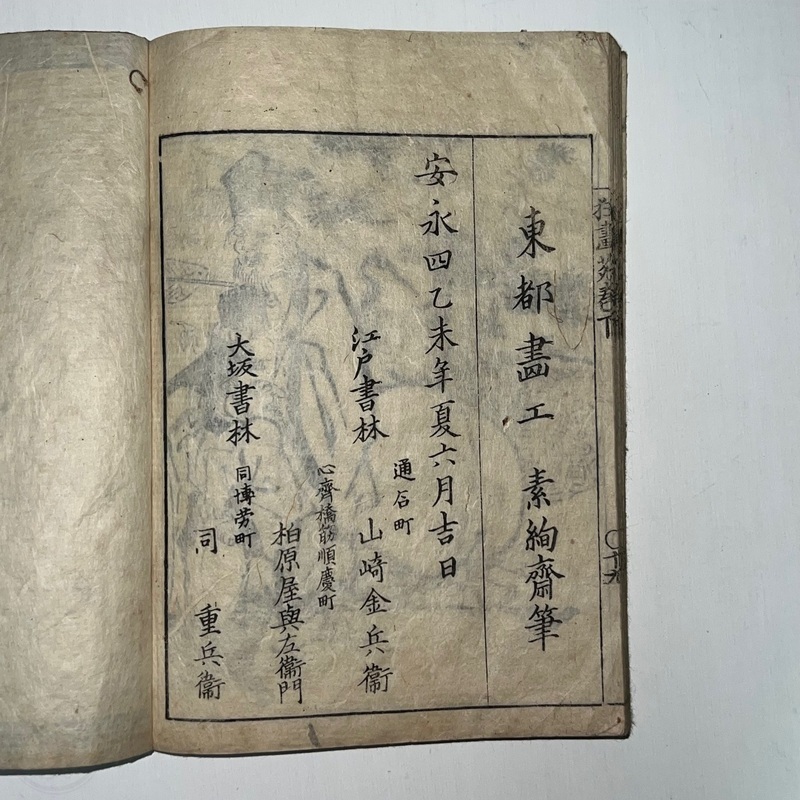 東都畫工 素絢齋筆
安永四乙未年夏六月吉日
江戸書林 通石町 山崎金兵衞
大坂書林 心齊橋筋順慶町 柏原屋與左衞門
同博労町 同 重兵衞